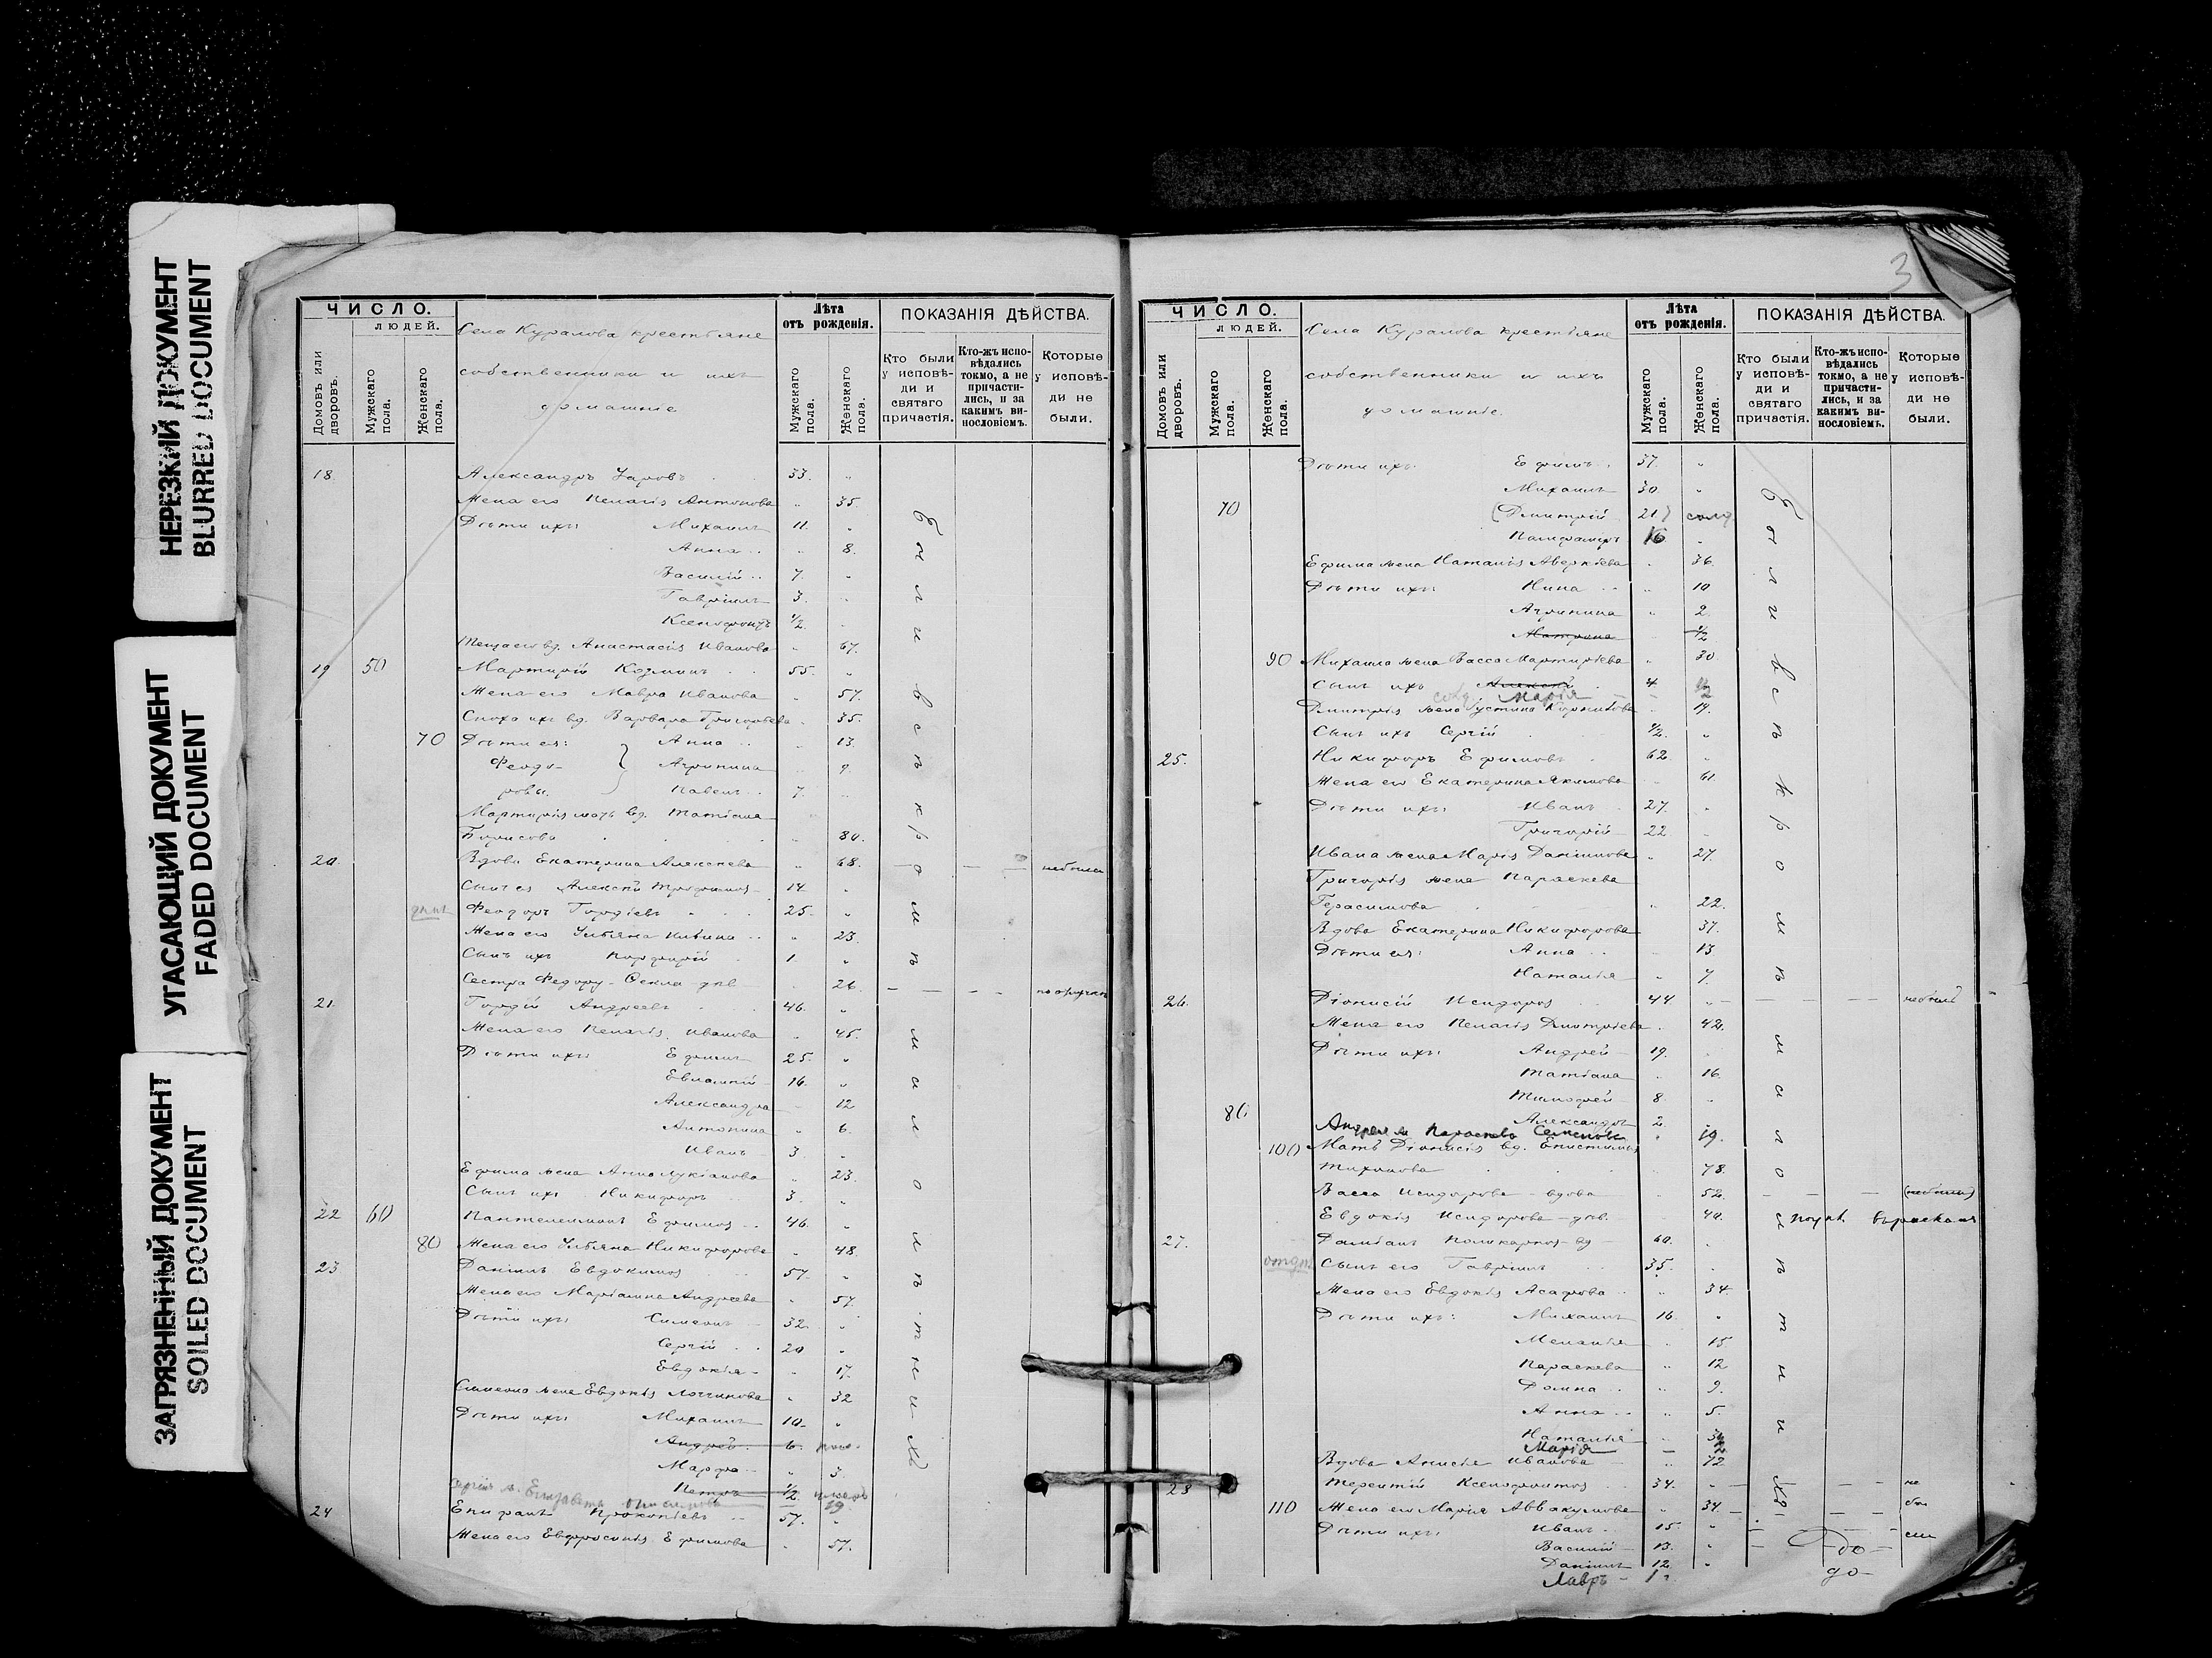 НЕРЕЗКИЙ ДОКУМЕНТ
BLURRED DOCUMENT
УГАСАЮЩИЙ ДОКУМЕНТ
FADED DOCUMENT
ЗАГРЯЗНЕННЫЙ ДОКУМЕНТ
SOILED DOCUMENT
ЧИСЛО.
ЛЮДЕЙ.
Домовъ или дворовъ.
Мужскаго пола.
Женскаго пола.
Села Куралова крестьяне
собственники и ихъ
домашніе
Лѣта
отъ рожденія.
Мужскаго пола.
Женскаго пола.
ПОКАЗАНІЯ ДѢЙСТВА.
Кто были у исповѣди и святаго причастія.
Кто-жъ исповѣдались токмо, а не причастились, и за какимъ винословіемъ.
Которые у исповѣди не были.
Были всѣ кромѣ малолѣтнихъ
18. Александръ 33. "
Жена его Пелагія Антонова " 35.
Дѣти ихъ: Михаилъ 11. "
Анна " 8.
Василій 7. "
Гавріилъ 3. "
Ксенофонтъ 1/2. "
Теща его вд. Анастасія Иванова " 67.
19 50 Мартирій Козминъ 55. "
Жена его Мавра Иванова " 57.
Сноха ихъ вд. Варвара Григорьева " 35.
70 Дѣти ея: Анна " 13.
Феодо- Агрипина " 9.
ровы. Павелъ 7. "
Мартирія мать вд. Татіана
Борисова " 80.
20. Вдова Екатерина Алексѣева " 68. — — не была
Сынъ ея Алексѣй Трофимов 14. "
Феодоръ Гордіевъ 25. "
Жена его Ульяна " 23.
Сынъ ихъ Порфирій 1. "
Сестра Федору - Фекла двц " 26. — — — —
21. Гордій Андреевъ 46. "
Жена его Пелагія Иванова " 45.
Дѣти ихъ: Ефимъ 25. "
Евлампій 16. "
Александра — 12
Антонина " 6.
Иванъ 3. "
Ефима жена Анна Лукіанова " 23.
Сынъ ихъ Никифоръ 3. "
22 60 Пантелеимонъ Ефимов 46. "
80 Жена его Ульяна Никифорова " 48.
23 Даніилъ Евдокимов 57. "
Жена его Маріанна Андреева " 57.
Дѣти ихъ: Симеонъ 32. "
Сергій 20 "
Евдокія " 17.
Симеона жена Евдокія Логгинова " 32
Дѣти ихъ: Михаилъ 10. "
Андрей 6.
Марфа " 3.
Петръ 1/2. умеръ
Сергія ж. Елизавета 19.
24 Епифанъ Прокопіевъ 57. "
Жена его Евфросинія Ефимова " 57.
3
ЧИСЛО.
ЛЮДЕЙ.
Домовъ или дворовъ.
Мужскаго пола.
Женскаго пола.
Села Куралова крестьяне
собственники и ихъ
домашніе.
Лѣта
отъ рожденія.
Мужскаго пола.
Женскаго пола.
ПОКАЗАНІЯ ДѢЙСТВА.
Кто были у исповѣди и святаго причастія.
Кто-жъ исповѣдались токмо, а не причастились, и за какимъ винословіемъ.
Которые у исповѣди не были.
Были всѣ кромѣ малолѣтнихъ
Дѣти ихъ: Ефимъ 37. "
Михаилъ 30. "
70 (Дмитрій 21) солд
16 "
Ефима жена Наталія Аверкіева " 36.
Дѣти ихъ: Нина " 10
Агрипина " 2.
Матрона 1/2
90 Михаила жена Васса Мартиріева " 30
Сынъ ихъ Алексѣй 4.
Марія — 1/2
Дмитрія жена Іустина " 19.
Сынъ ихъ Сергій 1/2. "
25. Никифоръ Ефимовъ 62. "
Жена его Екатерина Акимова — 61.
Дѣти ихъ: Иванъ 27. "
Григорій 22. "
Ивана жена Марія Даніилова " 27.
Григорія жена Параскева
Герасимова " 22.
Вдова Екатерина Никифорова 37.
Дѣти ея: Анна 13.
Наталья " 7.
26. Діонисій Исидоров 44. " — — — не былъ
Жена его Пелагія Дмитріева " 42.
Дѣти ихъ: Андрей 19. "
Татіана " 16.
Тимофей 8. "
80 Александръ 2.
Андрея ж Параскева Семенова " 19.
100 Мать Діонисія вд. Епистимія
Тихонова 78.
Васса Исидорова — вдова 52. — — — (не была)
Евдокія Исидорова — двц. 40.
27. Даміанъ Поликарпов — вд 60. "
Сынъ его Гавріилъ 35. "
Жена его Евдокія Асафова " 34
Дѣти ихъ: Михаилъ 16. "
Меланья " 15
Параскева " 12
Домна " 9.
Анна " 5.
Наталья
Марія —
Вдова Анисья Иванова " 72
28 Терентій Ксенофонтов 34. " — — — не
110 Жена его Марія Аввакумова " 34 — — — бы
Дѣти ихъ: Иванъ 15. " — — — ли
Василій 13. " — до —
Даніилъ 12. " до —
Лавръ — 1 "